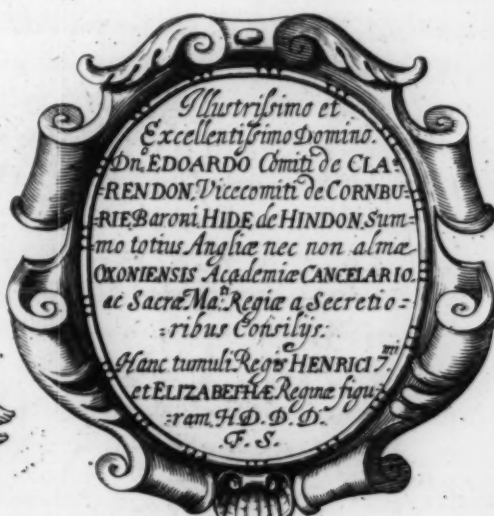 Illustrissimo et
Excellentissimo Domino.
Dn. EDOARDO Comiti de CLA-
RENDON, Vicecomiti de CORNBU-
RIE, Baroni, HIDE de HINDON, Sum-
mo totius Angliæ nec non almæ
OXONIENSIS Academiæ CANCELARIO,
ac Sacræ Ma:ti Regiæ a Secretio=
=ribus Consilijs:
Hanc tumuli Regis HENRICI 7.mi
et ELIZABETHÆ Reginæ figu
=ram. H.D.D.D.
F. S.